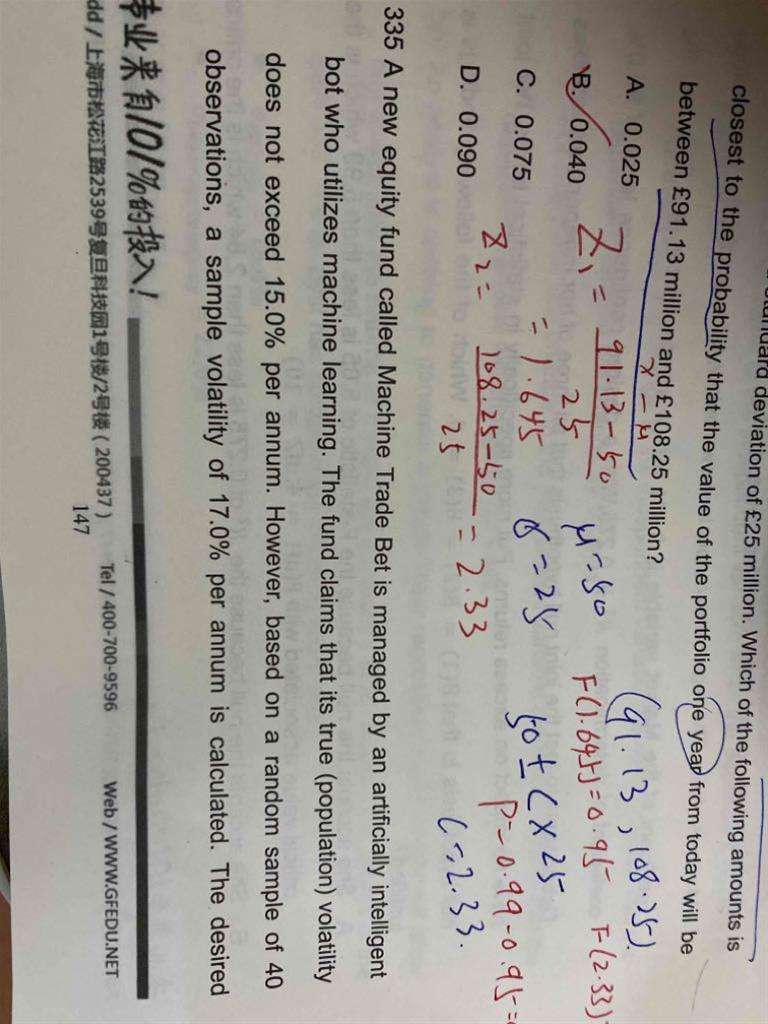 standard deviation of £25 million. Which of the following amounts is
closest to the probability that the value of the portfolio one year from today will be
between £91.13 million and £108.25 million?
x-μ
(91.13, 108.25)
A. 0.025
μ=50
F(1.645)=0.95 F(2.33)
B. 0.040
Z₁ = 91.13-50 / 25
σ=25
50±(×25
= 1.645
C. 0.075
P=0.99-0.95=
Z₂ = 108.25-50 / 25 = 2.33
D. 0.090
(=2.33.
335 A new equity fund called Machine Trade Bet is managed by an artificially intelligent
bot who utilizes machine learning. The fund claims that its true (population) volatility
does not exceed 15.0% per annum. However, based on a random sample of 40
observations, a sample volatility of 17.0% per annum is calculated. The desired
业来自101%的投入!
dd / 上海市松花江路2539号复旦科技园1号楼/2号楼 ( 200437 ) Tel / 400-700-9596 Web / WWW.GFEDU.NET
147